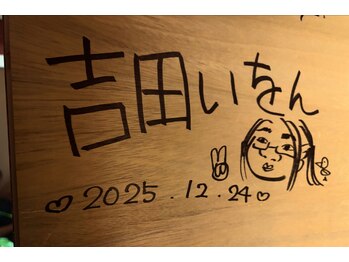 吉田いをん
♡2025.12.24♡